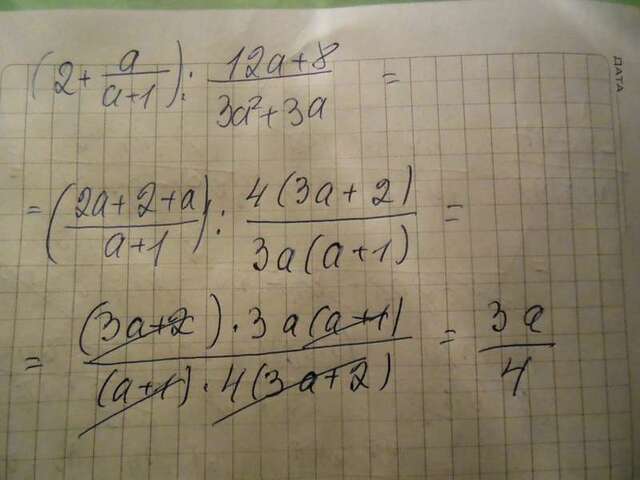 (2 + a/(a+1)) : (12a+8)/(3a²+3a) =
= ((2a+2+a)/(a+1)) : 4(3a+2)/(3a(a+1)) =
= (3a+2)·3a(a+1)/((a+1)·4(3a+2)) = 3a/4
ДАТА